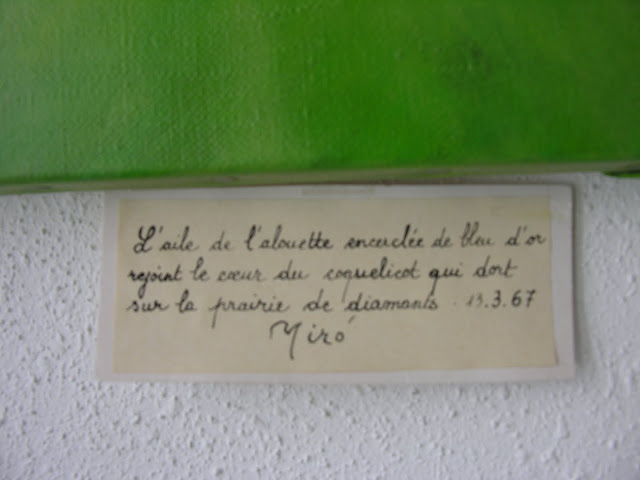 L'aile de l'alouette encerclée de bleu d'or
rejoint le cœur du coquelicot qui dort
sur la prairie de diamants. 13.3.67
Miró